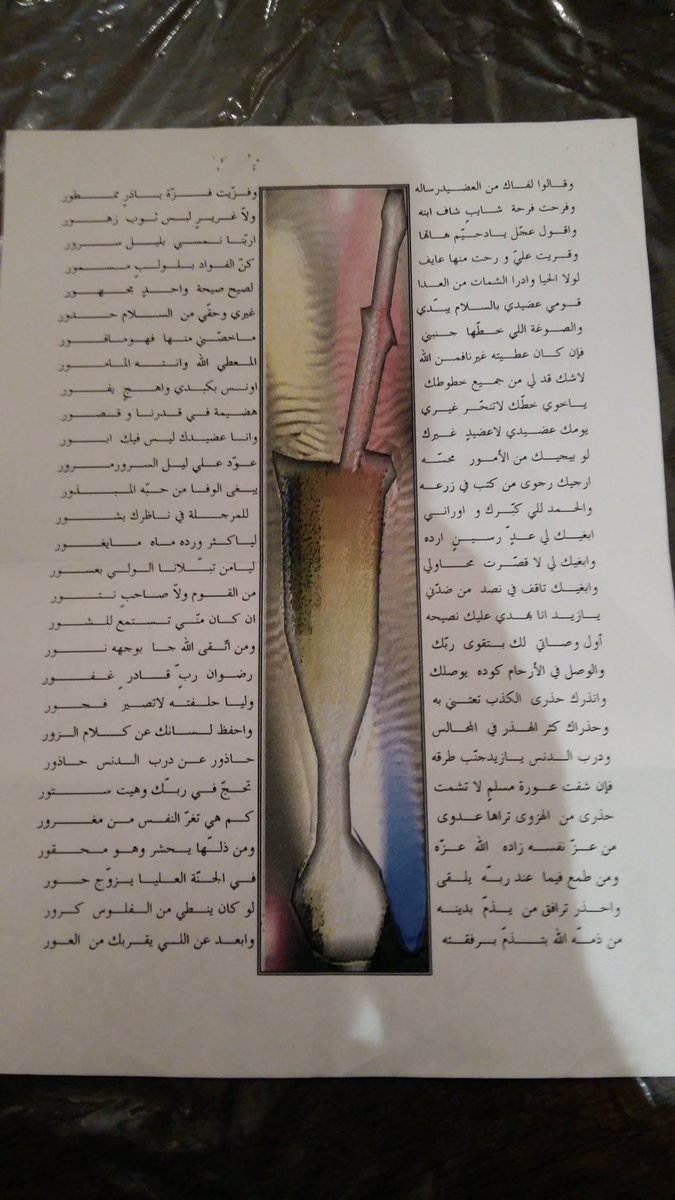 وقالوا لفاك من العضيدرساله وفزّيت فزّة بادرٍ ممطور
وفرحت فرحة شايبٍ شاف ابنه ولاّ غريرٍ لبس ثوب زهور
واقول عجّل يادحيّم هاتها اربّنا نمسي بليل سرور
وقريت عليّ و رحت منها عايف كنّ الفواد بلولبٍ مسمور
لولا الحيا وادرا الشمات من العدا لصيح صيحة واحدٍ مجهور
قومي عضيدي بالسلام يبدّي غيري وحقّي من السلام حدور
والصوغة اللي خطّها جنبني ماخصّني منها فهومافور
فإن كان عطيته غيرنافمن الله المعطي الله وانته المامور
لاشك قد لي من جميع خطوطك اونس بكبدي واهجٍ يفور
ياخوي خطّك لاتنحّر غيري هضيمة في قدرنا و قصور
يومك عضيدي لاعضيدٍ غيرك وانا عضيدك ليس فيك ابور
لو بيجيك من الأمور محسّه عوّد علي ليل السرورمرور
ارجيك رجوى من كتب في زرعه يبغى الوفا من حبّه المبذور
والحمد للي كبّرك و اوراني للمرجلة في ناظرك بشور
ابغيك لي عدٍّ رسينٍ ارده لياكثر ورده ماه مايغور
وابغيك لي لا قصّرت محاولي ليامن تبلاّنا الولي بعسور
وابغيك تاقف في نصد من ضدّني من القوم ولاّ صاحبٍ نتور
يازيد انا بهدي عليك نصيحه ان كان منّي تستمع للشور
أول وصاتي لك بتقوى ربّك ومن أتقى الله جا بوجهه نور
والوصل في الأرحام كوده يوصلك رضوان ربٍّ قادرٍ غفور
وانذرك حذرى الكذب تعتني به وليا حلفته لاتصير فجور
وحذراك كثر الهذر في المجالس واحفظ لسانك عن كلام الزور
ودرب الدنس يازيدجنّب طرقه حاذور عن درب الدنس حاذور
فإن شفت عورة مسلمٍ لا تشمت تحجّ في ربّك وهيت ستور
حذرى من الهزوى تراها عدوى كم هي تغرّ النفس من مغرور
من عزّ نفسه زاده الله عزّه ومن ذلّها يحشر وهو محقور
ومن طمع فيما عند ربّه يلقى في الجنّة العليا يزوّج حور
واحذر ترافق من يذمّ بدينه لو كان ينطي من الفلوس كرور
من ذمّه الله بتذمّ برفقته وابعد عن اللي يقربك من العور